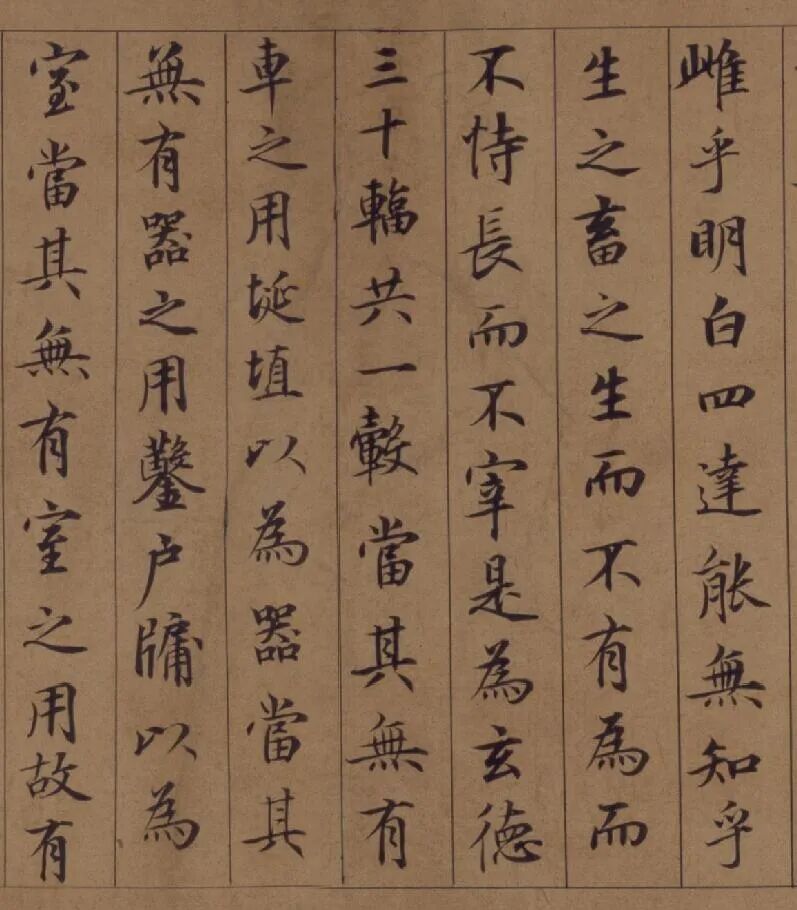 雌乎明白四達能無知乎
生之畜之生而不有為而
不恃長而不宰是為玄德
三十輻共一轂當其無有
車之用埏埴以為器當其
無有器之用鑿戶牖以為
室當其無有室之用故有